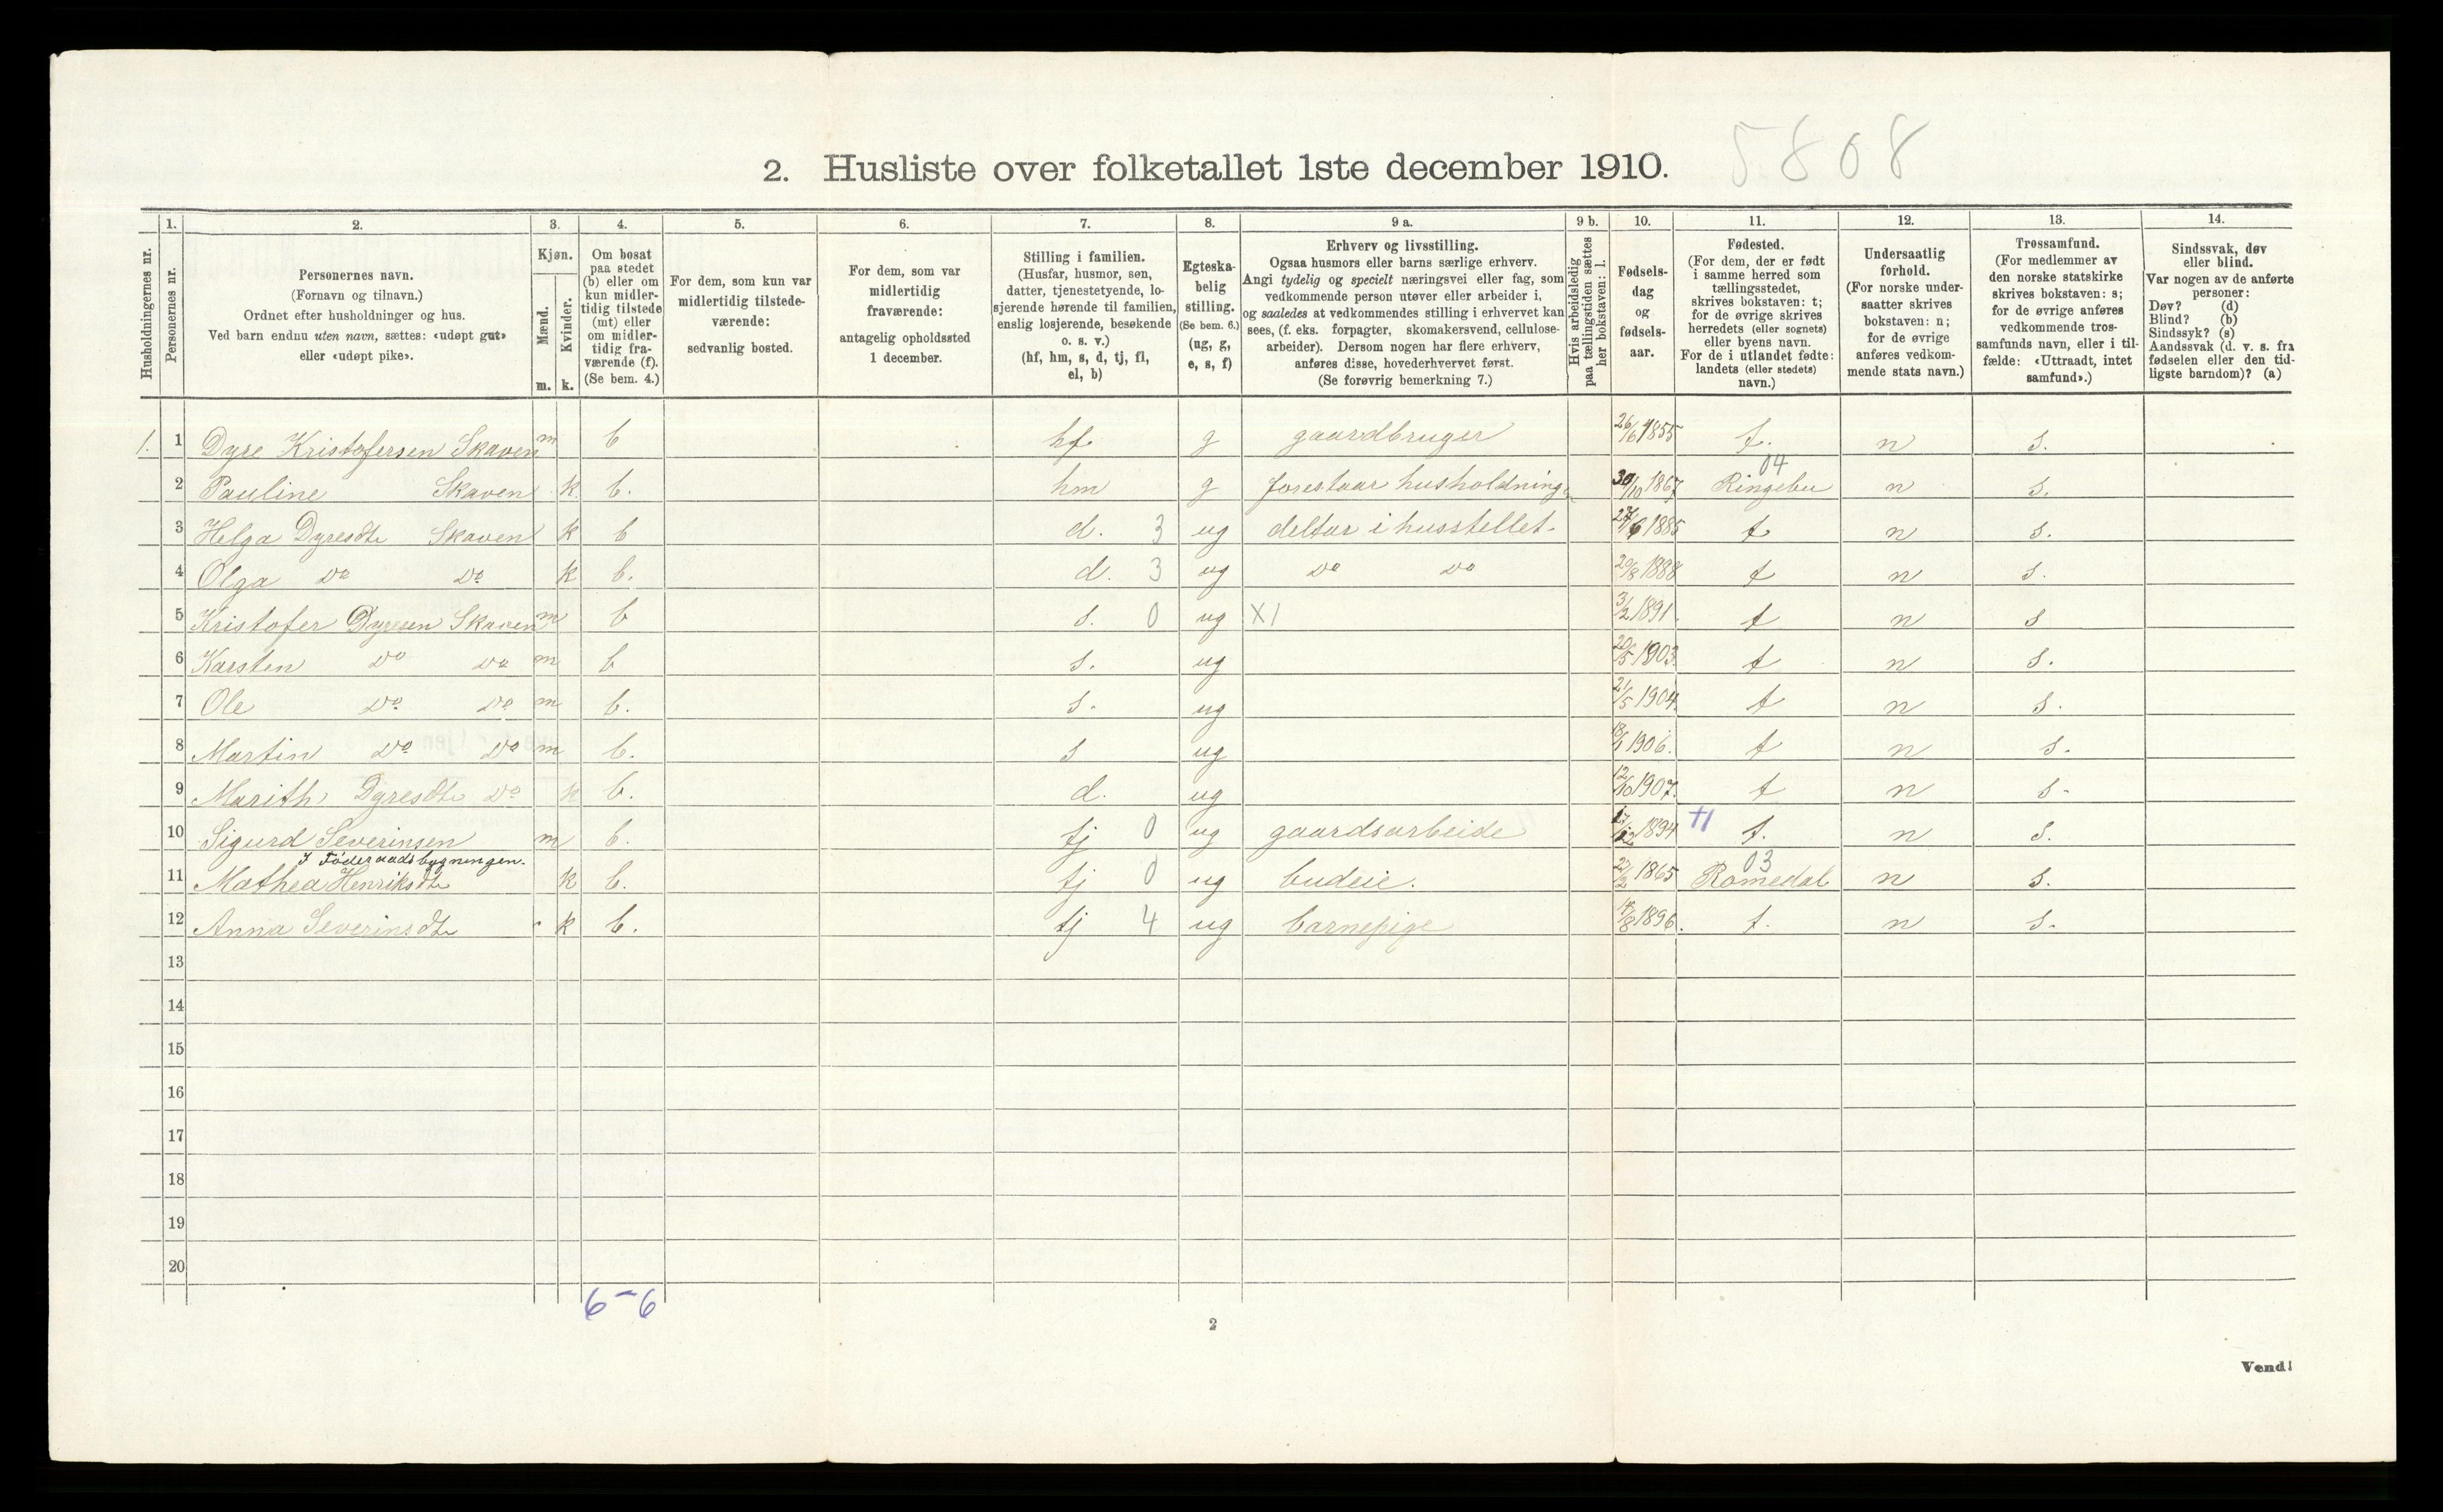 5808
2. Husliste over folketallet 1ste december 1910.
Husholdningernes nr.
1. Personernes nr.
2. Personernes navn.
(Fornavn og tilnavn.)
Ordnet efter husholdninger og hus.
Ved barn endnu uten navn, sættes: «udøpt gut»
eller «udøpt pike».
3. Kjøn.
Mænd. m.
Kvinder. k.
4. Om bosat
paa stedet
(b) eller om
kun midler-
tidig tilstede
(mt) eller
om midler-
tidig fra-
værende (f).
(Se bem. 4.)
5. For dem, som kun var
midlertidig tilstede-
værende:
sedvanlig bosted.
6. For dem, som var
midlertidig
fraværende:
antagelig opholdssted
1 december.
7. Stilling i familien.
(Husfar, husmor, søn,
datter, tjenestetyende, lo-
sjerende hørende til familien,
enslig losjerende, besøkende
o. s. v.)
(hf, hm, s, d, tj, fl,
el, b)
8. Egteska-
belig
stilling.
(Se bem. 6.)
(ug, g,
e, s, f)
9 a. Erhverv og livsstilling.
Ogsaa husmors eller barns særlige erhverv.
Angi tydelig og specielt næringsvei eller fag, som
vedkommende person utøver eller arbeider i,
og saaledes at vedkommendes stilling i erhvervet kan
sees, (f. eks. forpagter, skomakersvend, cellulose-
arbeider). Dersom nogen har flere erhverv,
anføres disse, hovederhvervet først.
(Se forøvrig bemerkning 7.)
9 b. Hvis arbeidsledig
paa tællingstiden sættes
her bokstaven: l.
10. Fødsels-
dag
og
fødsels-
aar.
11. Fødested.
(For dem, der er født
i samme herred som
tællingsstedet,
skrives bokstaven: t;
for de øvrige skrives
herredets (eller sognets)
eller byens navn.
For de i utlandet fødte:
landets (eller stedets)
navn.)
12. Undersaatlig
forhold.
(For norske under-
saatter skrives
bokstaven: n;
for de øvrige
anføres vedkom-
mende stats navn.)
13. Trossamfund.
(For medlemmer av
den norske statskirke
skrives bokstaven: s;
for de øvrige anføres
vedkommende tros-
samfunds navn, eller i til-
fælde: «Uttraadt, intet
samfund».)
14. Sindssvak, døv
eller blind.
Var nogen av de anførte
personer:
Døv? (d)
Blind? (b)
Sindssyk? (s)
Aandssvak (d. v. s. fra
fødselen eller den tid-
ligste barndom)? (a)
1. 1 Dyre Kristofersen Skaven m b hf. g gaardbruger 26/6 1855 t. n s.
04
2 Pauline Skaven k b. hm g forestaar husholdning 30/10 1867 Ringebu n s.
3 Helga Dyresdtr Skaven k b d. 3 ug deltar i husstellet. 27/6 1885 t n s.
4 Olga Do Do k b. d. 3 ug Do Do 29/8 1888 t n s.
5 Kristofer Dyresen Skaven m b s. 0 ug X1 3/2 1891 t n s
6 Karsten Do Do m b s. ug 20/5 1903. t n s.
7 Ole Do Do m b. s. ug 21/5 1904. t n s.
8 Martin Do Do m b. s ug 1906. t n s.
9 Marith Dyresdtr Do k b. d. ug 12/10 1907. t n s.
10 Sigurd Severinsen m b. tj 0 ug gaardsarbeide 17/12 1894 t. n s.
I Føderaadsbygningen. 03
11 Mathea Henriksdtr k b. tj 0 ug budeie. 22/2 1865 Romedal n s.
12 Anna Severinsdtr k b. tj 4 ug barnepige 1896. t. n s.
13
14
15
16
17
18
19
20
6-6
2
Vend!